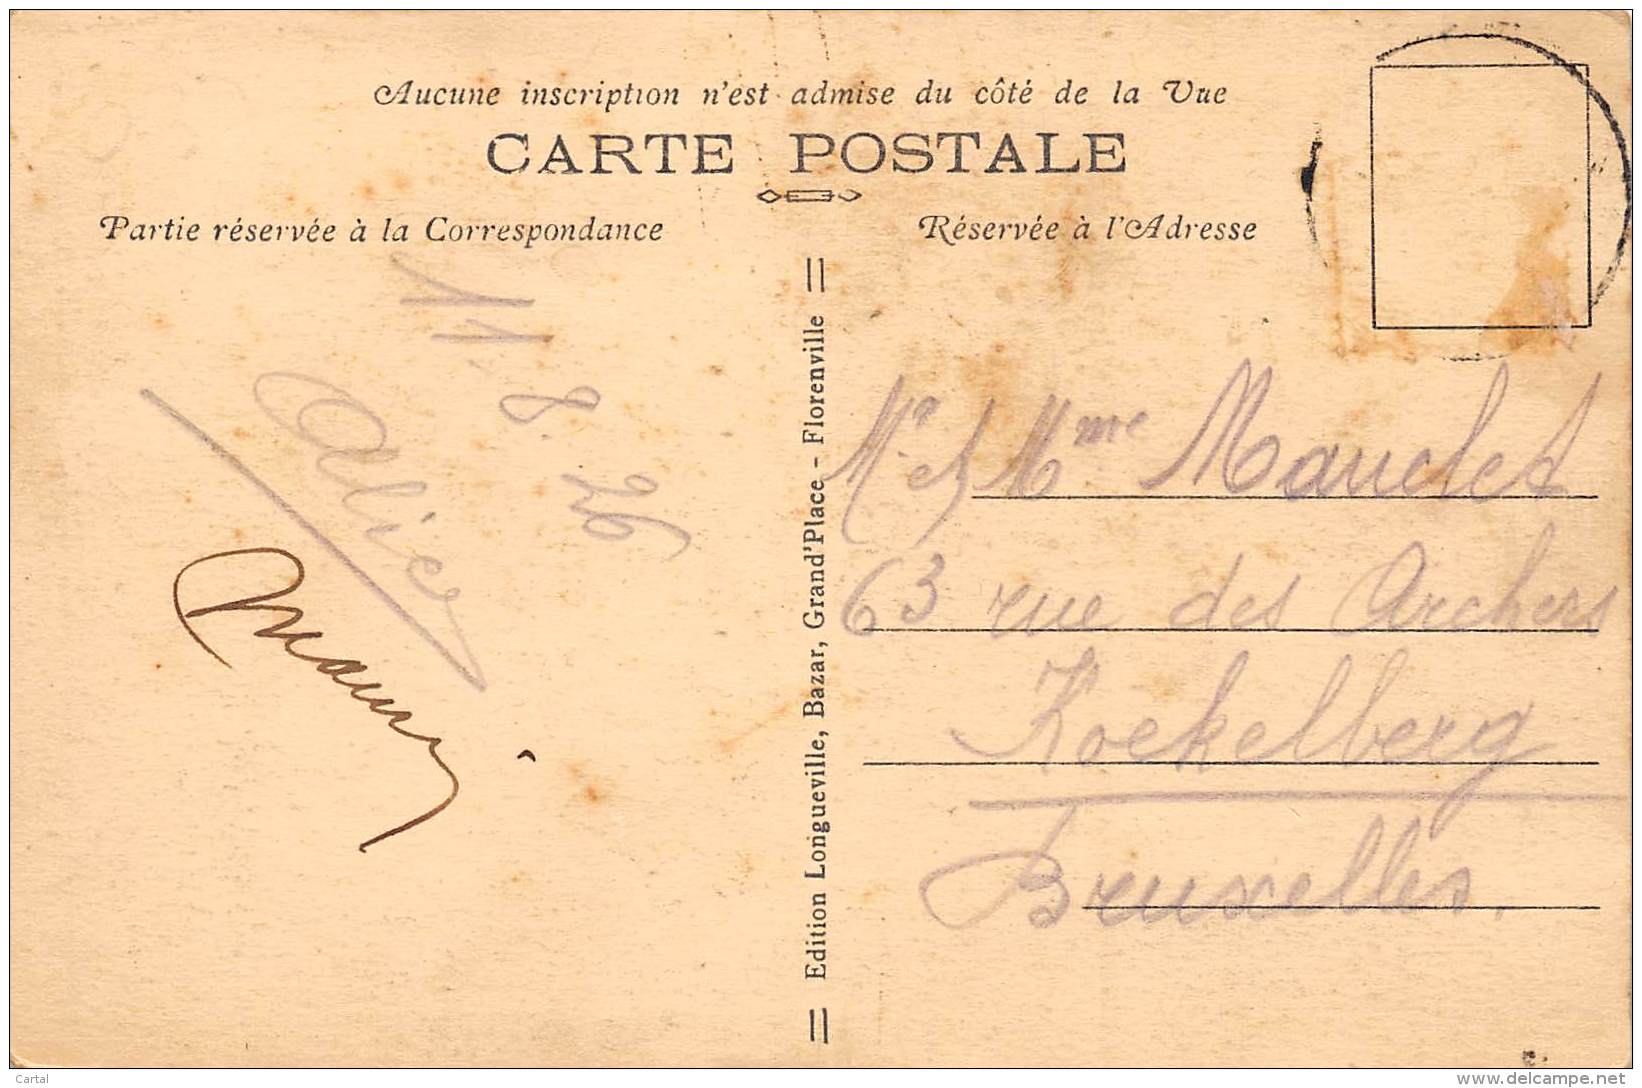 Aucune inscription n'est admise du côté de la Vue
CARTE POSTALE
Partie réservée à la Correspondance
Réservée à l'Adresse
11.8.26
Alice
Edition Longueville, Bazar, Grand'Place - Florenville
Mr et Mme Mauclet
63 rue des Archers
Koekelberg
Bruxelles.
Cartal
www.delcampe.net